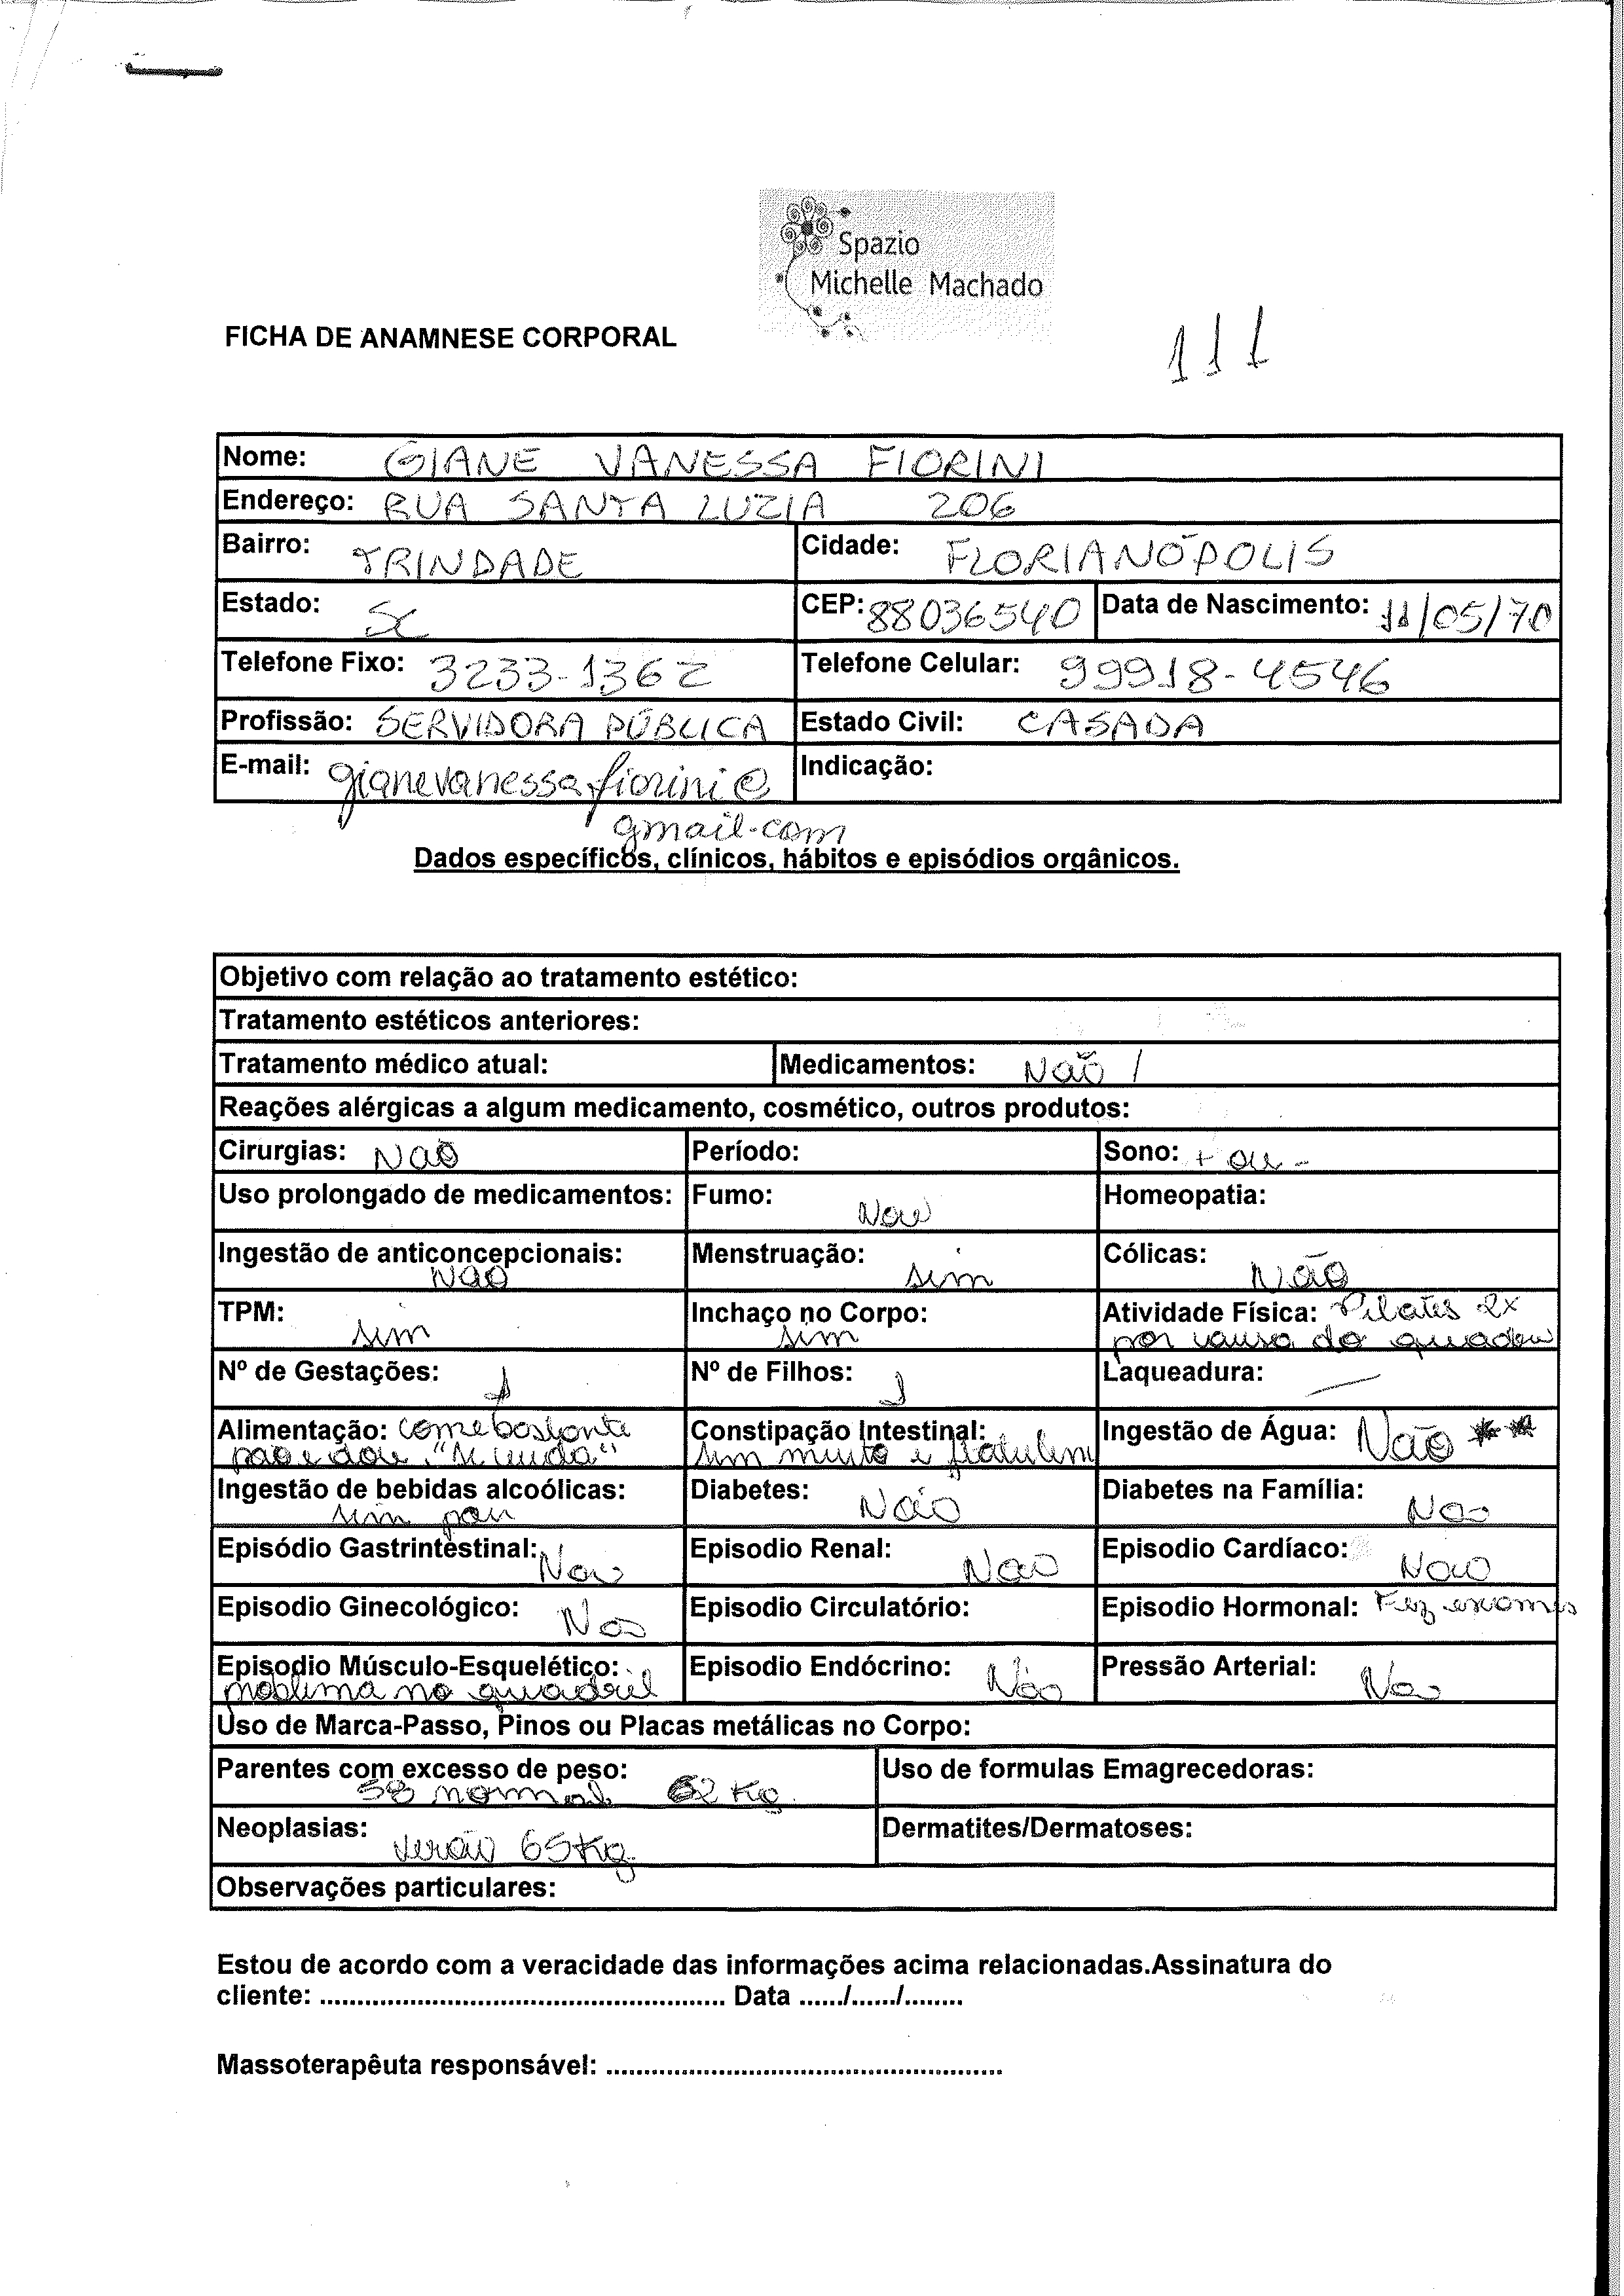 Spazio
Michelle Machado
FICHA DE ANAMNESE CORPORAL
111
Nome: GIANE VANESSA FIORINI
Endereço: RUA SANTA LUZIA 206
Bairro: TRINDADE Cidade: FLORIANÓPOLIS
Estado: SC CEP: 88036540 Data de Nascimento: 11/05/70
Telefone Fixo: 3233-1362 Telefone Celular: 99918-4546
Profissão: SERVIDORA PÚBLICA Estado Civil: CASADA
E-mail: gianevanessafiorini@ Indicação:
gmail.com
Dados específicos, clínicos, hábitos e episódios orgânicos.
Objetivo com relação ao tratamento estético:
Tratamento estéticos anteriores:
Tratamento médico atual: Medicamentos: Não /
Reações alérgicas a algum medicamento, cosmético, outros produtos:
Cirurgias: Não Período: Sono: + ou -
Uso prolongado de medicamentos: Fumo: Não Homeopatia:
Ingestão de anticoncepcionais: Menstruação: sim Cólicas: Não
Não
TPM: sim Inchaço no Corpo: Atividade Física: Pilates 2x
sim por causa do quadril
Nº de Gestações: 1 Nº de Filhos: 1 Laqueadura: —
Alimentação: come bastante Constipação Intestinal: Ingestão de Água: Não **
pão e doce. sim muito e
Ingestão de bebidas alcoólicas: Diabetes: Não Diabetes na Família: Não
sim
Episódio Gastrintestinal: Não Episodio Renal: Não Episodio Cardíaco: Não
Episodio Ginecológico: Não Episodio Circulatório: Episodio Hormonal: Fez exames
Episodio Músculo-Esquelético: Episodio Endócrino: Não Pressão Arterial: Não
problema no quadril
Uso de Marca-Passo, Pinos ou Placas metálicas no Corpo:
Parentes com excesso de peso: Uso de formulas Emagrecedoras:
58 normal 62 Kg.
Neoplasias: verão 65Kg. Dermatites/Dermatoses:
Observações particulares:
Estou de acordo com a veracidade das informações acima relacionadas.Assinatura do
cliente: ...................................................... Data ....../....../........
Massoterapêuta responsável: .....................................................